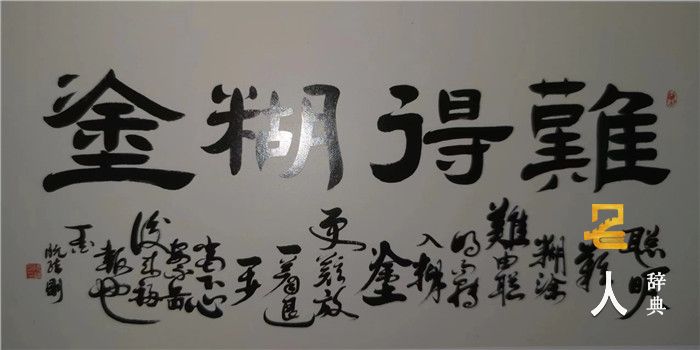 難得糊塗
聰明
難
糊涂
難由聰
明而轉
入糊
塗
更難放
一著退
一步
當下心
安非圖
後來福
報也
人
辞典